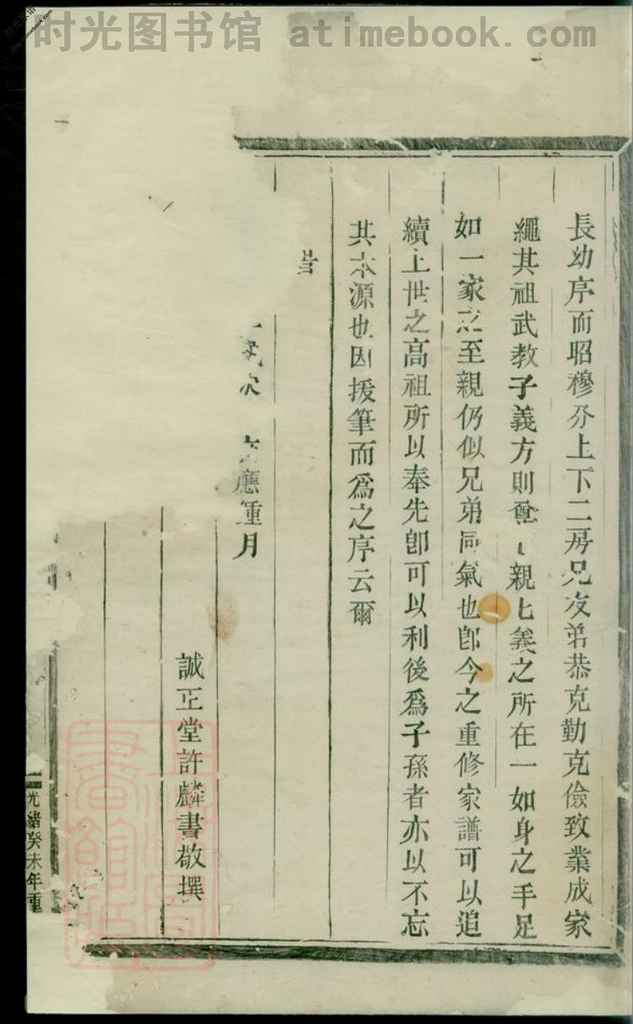 时光图书馆 atimebook.com
長幼序而昭穆分上下二房兄友弟恭克勤克儉致業成家
繩其祖武教子義方則 親 義之所在一如身之手足
如一家之至親仍似兄弟同氣也即今之重修家譜可以追
續上世之高祖所以奉先卽可以利後爲子孫者亦以不忘
其本源也因援筆而爲之序云爾
旹
次 應鍾月
誠正堂許麟書敬撰
光緒癸未年重